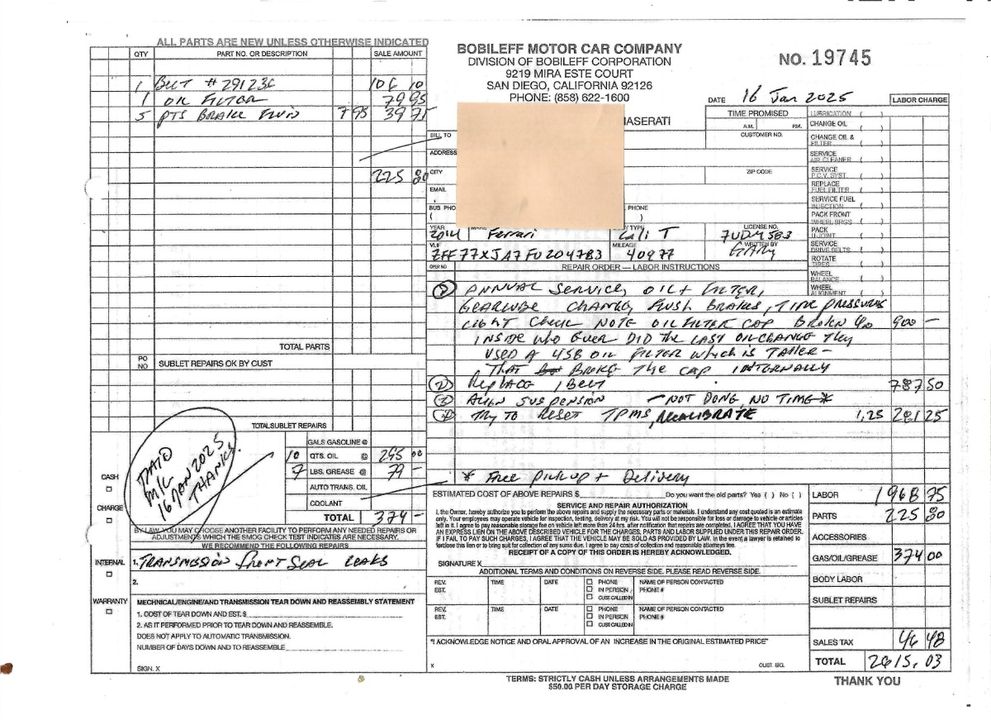 ALL PARTS ARE NEW UNLESS OTHERWISE INDICATED
QTY PART NO. OR DESCRIPTION SALE AMOUNT
1 BELT # 291236 106 10
1 OIL FILTER 79 95
5 PTS BRAKE FLUID 7 95 39 75
225 80
TOTAL PARTS
PO NO SUBLET REPAIRS OK BY CUST
TOTAL SUBLET REPAIRS
CASH
CHARGE
INTERNAL
WARRANTY
PAID
M/C
16 JAN 2025
THANKS
GALS GASOLINE @
10 QTS. OIL @ 295 00
7 LBS. GREASE @ 79 -
AUTO TRANS. OIL
COOLANT
TOTAL 374 -
BY LAW, YOU MAY CHOOSE ANOTHER FACILITY TO PERFORM ANY NEEDED REPAIRS OR
ADJUSTMENTS WHICH THE SMOG CHECK TEST INDICATES ARE NECESSARY.
WE RECOMMEND THE FOLLOWING REPAIRS
1. TRANSMISSION FRONT SEAL LEAKS
2.
MECHNICAL/ENGINE/AND TRANSMISSION TEAR DOWN AND REASSEMBLY STATEMENT
1. COST OF TEAR DOWN AND EST. $
2. AS IT PERFORMED PRIOR TO TEAR DOWN AND REASSEMBLE.
DOES NOT APPLY TO AUTOMATIC TRANSMISSION.
NUMBER OF DAYS DOWN AND TO REASSEMBLE
SIGN. X
BOBILEFF MOTOR CAR COMPANY
DIVISION OF BOBILEFF CORPORATION
9219 MIRA ESTE COURT
SAN DIEGO, CALIFORNIA 92126
PHONE: (858) 622-1600
MASERATI
NO. 19745
DATE 16 Jan 2025
TIME PROMISED
A.M. P.M.
CUSTOMER NO.
BILL TO
ADDRESS
CITY ZIP CODE
EMAIL
BUS PHO PHONE
YEAR TYPE LICENSE NO.
2014 Ferrari Cali T 7UDM583
VIN MILEAGE WRITTEN BY
ZFF77XJA7F0204783 40977 GARY
LABOR CHARGE
LUBRICATION ( )
CHANGE OIL ( )
CHANGE OIL & FILTER ( )
SERVICE AIR CLEANER ( )
SERVICE P.C.V. SYST ( )
REPLACE FUEL FILTER ( )
SERVICE FUEL INJECTION ( )
PACK FRONT WHEEL BRGS ( )
PACK U-JOINT ( )
SERVICE DRIVE BELTS ( )
ROTATE TIRES ( )
WHEEL BALANCE ( )
WHEEL ALIGNMENT ( )
OPER NO REPAIR ORDER — LABOR INSTRUCTIONS
ANNUAL SERVICE, OIL + FILTER,
GEARLUBE CHANGE, FLUSH BRAKES, TIRE PRESSURES
LIGHT CHECK NOTE OIL FILTER CAP BROKEN 4.0 900 -
INSIDE WHO EVER DID THE LAST OIL CHANGE THEY
USED A 458 OIL FILTER WHICH IS TALLER -
THAT BROKE THE CAP INTERNALLY
2 REPLACE 1 BELT 787 50
3 ALIGN SUSPENSION - NOT DONE, NO TIME *
4 TRY TO RESET TPMS, RECALIBRATE 1,25 281 25
* FREE PICKUP + DELIVERY
ESTIMATED COST OF ABOVE REPAIRS $ Do you want the old parts? Yes ( ) No ( )
SERVICE AND REPAIR AUTHORIZATION
I, the Owner, hereby authorize you to perform the above repairs and supply the necessary parts or materials. I understand any cost quoted is an estimate
only. Your employees may operate vehicle for inspection, testing, delivery at my risk. You will not be responsible for loss or damage to vehicle or articles
RECEIPT OF A COPY OF THIS ORDER IS HEREBY ACKNOWLEDGED.
SIGNATURE X
ADDITIONAL TERMS AND CONDITIONS ON REVERSE SIDE. PLEASE READ REVERSE SIDE.
REV. EST. TIME DATE PHONE IN PERSON CUST CALLED IN NAME OF PERSON CONTACTED PHONE #
REV. EST. TIME DATE PHONE IN PERSON CUST CALLED IN NAME OF PERSON CONTACTED PHONE #
"I ACKNOWLEDGE NOTICE AND ORAL APPROVAL OF AN INCREASE IN THE ORIGINAL ESTIMATED PRICE"
X CUST. SIG.
LABOR 1968 75
PARTS 225 80
ACCESSORIES
GAS/OIL/GREASE 374 00
BODY LABOR
SUBLET REPAIRS
SALES TAX 46 48
TOTAL 2615.03
TERMS: STRICTLY CASH UNLESS ARRANGEMENTS MADE
$50.00 PER DAY STORAGE CHARGE
THANK YOU